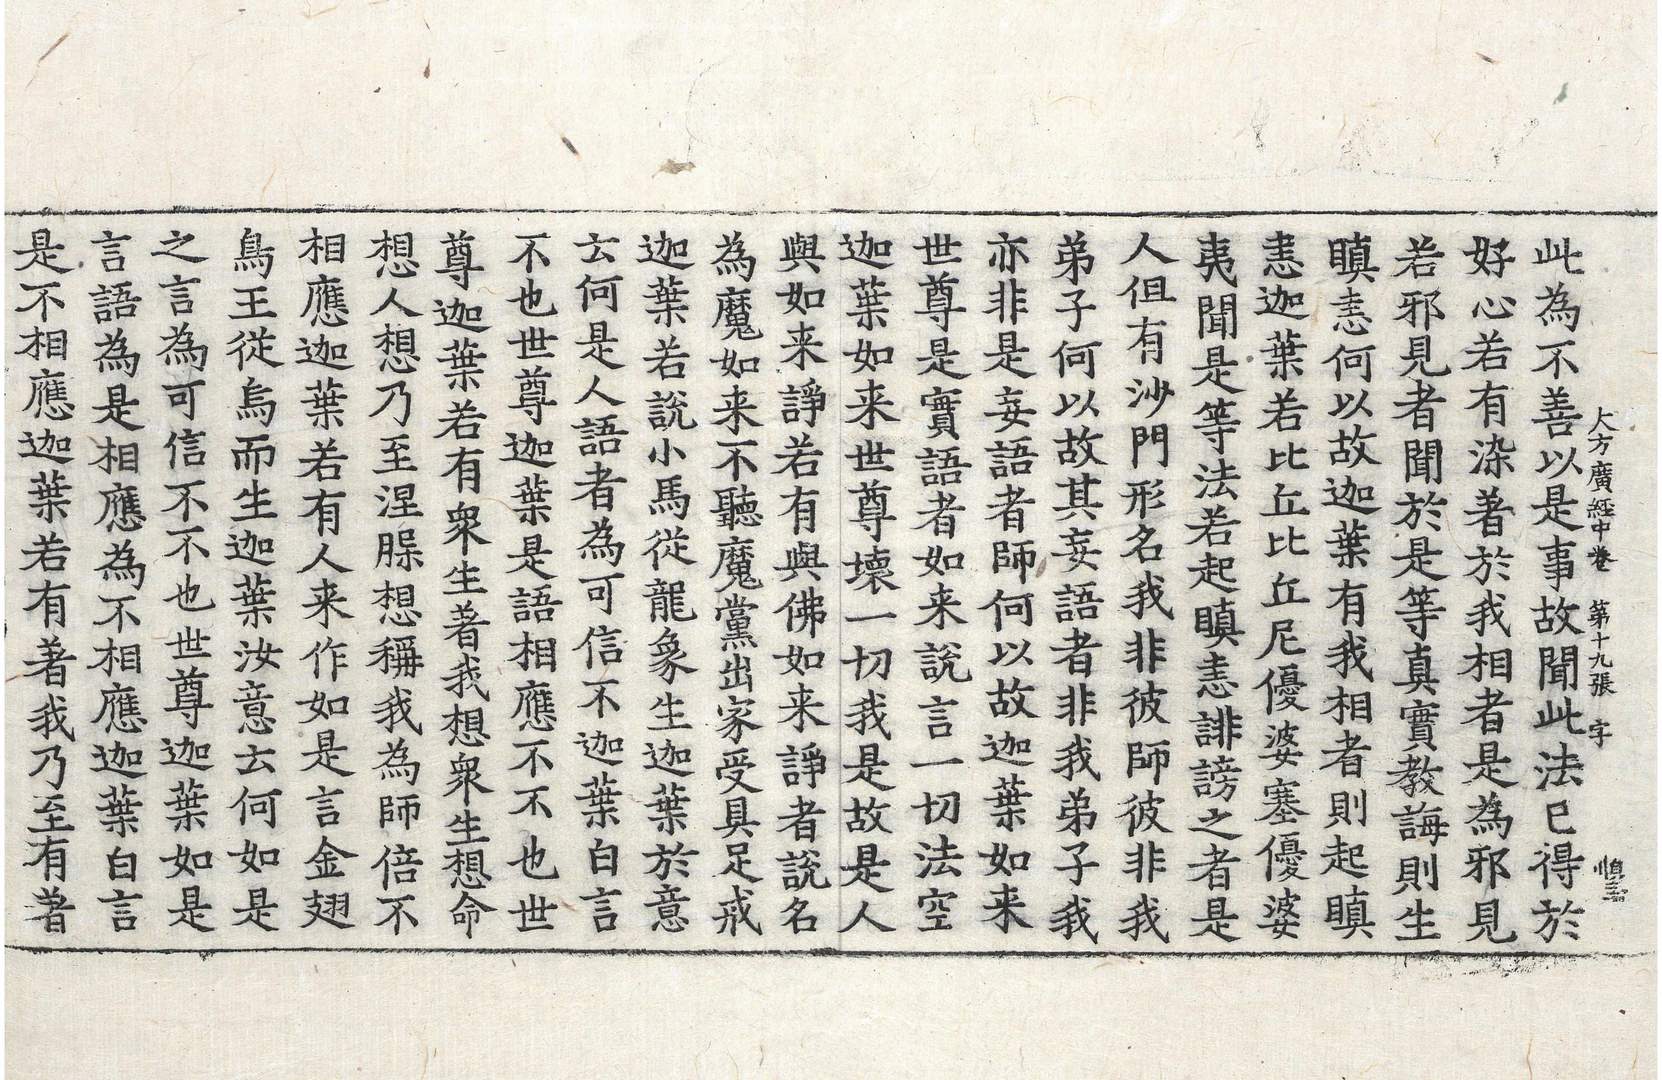 大方廣經中卷 第十九張 字
此為不善以是事故聞此法已得於
好心若有染著於我相者是為邪見
若邪見者聞於是等真實教誨則生
瞋恚何以故迦葉有我相者則起瞋
恚迦葉若比丘比丘尼優婆塞優婆
夷聞是等法若起瞋恚誹謗之者是
人但有沙門形名我非彼師彼非我
弟子何以故其妄語者非我弟子我
亦非是妄語者師何以故迦葉如来
世尊是實語者如来説言一切法空
迦葉如来世尊壞一切我是故是人
與如来諍若有與佛如来諍者説名
為魔如来不聽魔黨出家受具足戒
迦葉若説小馬從龍象生迦葉於意
云何是人語者為可信不迦葉白言
不也世尊迦葉是語相應不不也世
尊迦葉若有衆生著我想衆生想命
想人想乃至涅槃想稱我為師倍不
相應迦葉若有人来作如是言金翅
鳥王從烏而生迦葉汝意云何如是
之言為可信不不也世尊迦葉如是
言語為是相應為不相應迦葉白言
是不相應迦葉若有著我乃至有著